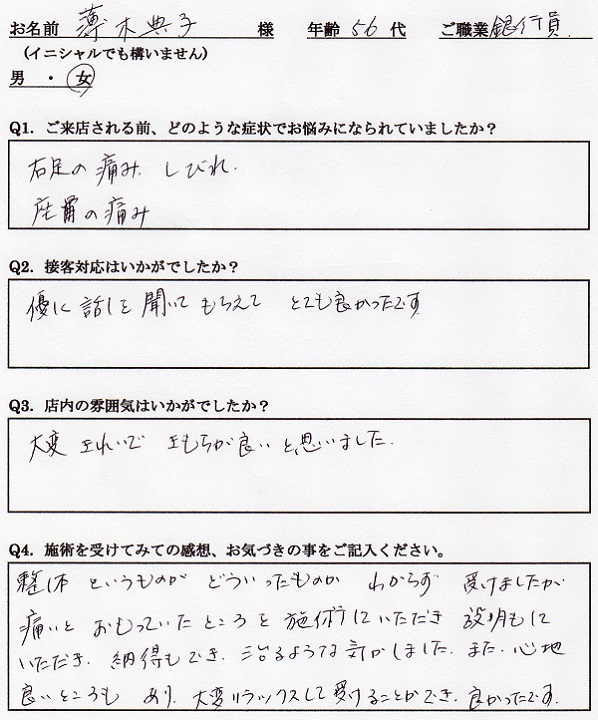 お名前 薄木典子 様 年齢 56 代 ご職業 銀行員.
(イニシャルでも構いません)
男 ・ 女
Q1. ご来店される前、どのような症状でお悩みになられていましたか？
右足の痛み、しびれ.
座骨の痛み
Q2. 接客対応はいかがでしたか？
優に 話しを 聞いて もらえて とても良かったです
Q3. 店内の雰囲気はいかがでしたか？
大変 きれいで きもちが良い と思いました.
Q4. 施術を受けてみての感想、お気づきの事をご記入ください。
整体 というものが どういったものか わからず 受けましたが
痛いと おもっていた ところを 施術していただき 説明もして
いただき. 納得もでき. 治るような気がしました. また. 心地
良いところも あり. 大変リラックスして受けることができ. 良かったです.